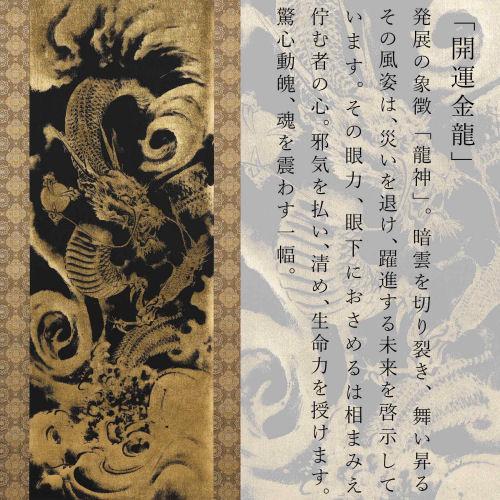 「開運金龍」
発展の象徴「龍神」。暗雲を切り裂き、舞い昇る
その風姿は、災いを退け、躍進する未来を啓示して
います。その眼力、眼下におさめるは相まみえ
佇む者の心。邪気を払い、清め、生命力を授けます。
驚心動魄、魂を震わす一幅。